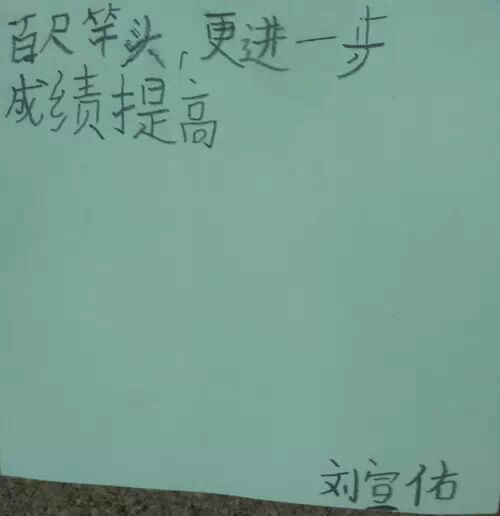 百尺竿头,更进一步
成绩提高
刘宣佑